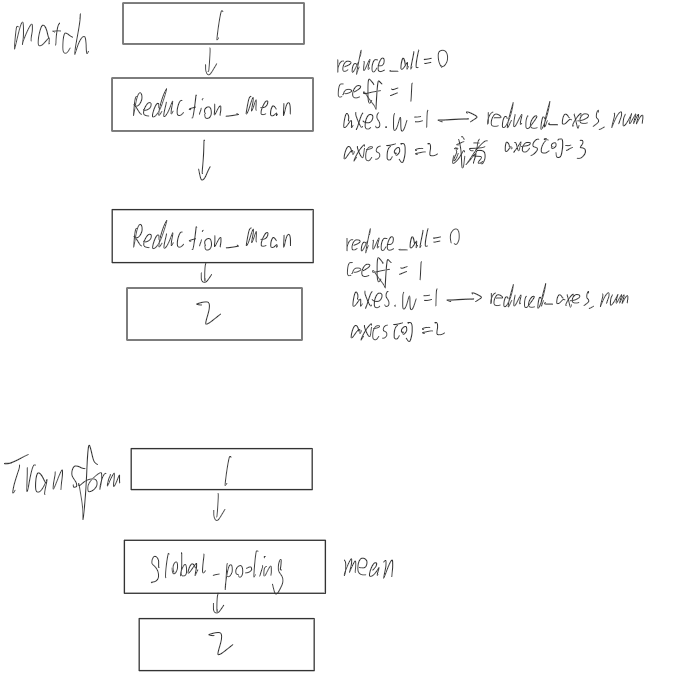 match
1
Reduction_mean
reduce_all=0
coeff = 1
axes.w=1 → reduced_axes_num
axies[0]=2 或者 axes[0]=3
Reduction_mean
reduce_all=0
coeff = 1
axes.w=1 → reduced_axes_num
axies[0]=2
2
Transform
1
global_pooling
mean
2